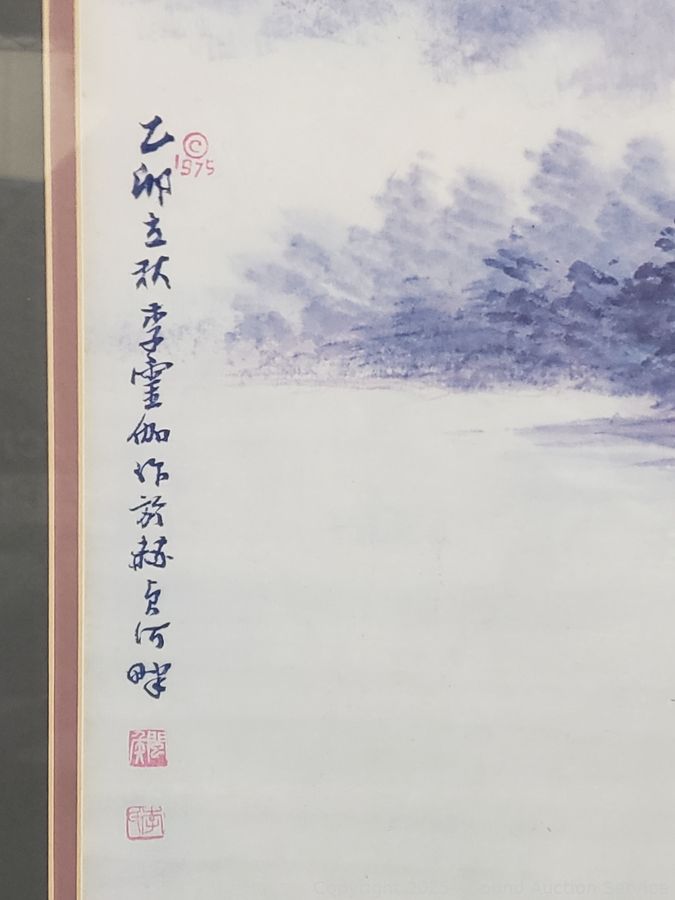 乙卯立秋李靈伽作於赫貞河畔
© 1975
Copyright 2025 Sound Auction Service